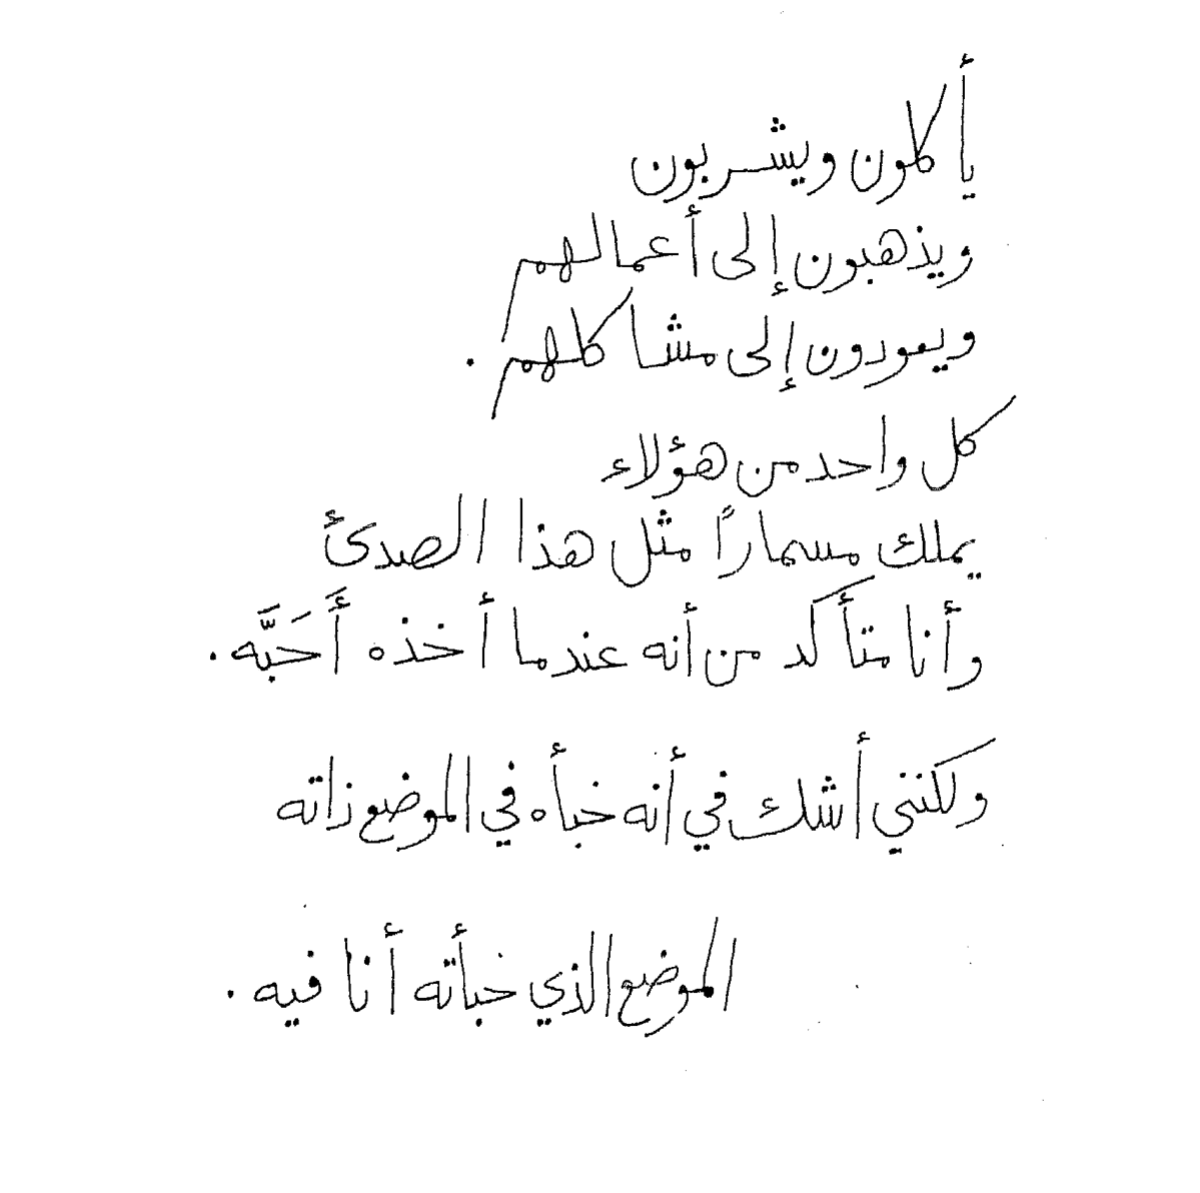 يأكلون ويشربون
ويذهبون إلى أعمالهم
ويعودون إلى مشاكلهم .
كل واحد من هؤلاء
يملك مسماراً مثل هذا الصدئ
وأنا متأكد من أنه عندما أخذه أَحَبَّه .
ولكنني أشك في أنه خبأه في الموضع زاته
الموضع الذي خبأته أنا فيه .